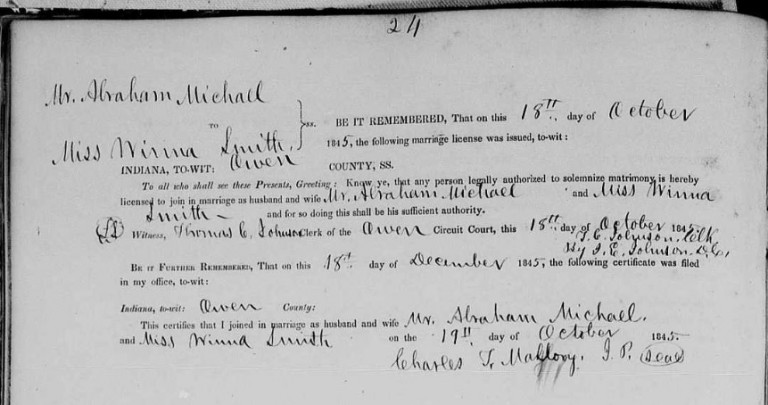 24
Mr. Abraham Michael
TO
Miss Winna Smith.
ss. BE IT REMEMBERED, That on this 18th day of October
1845, the following marriage license was issued, to-wit:
INDIANA, TO-WIT: Owen COUNTY, SS.
To all who shall see these Presents, Greeting: Know ye, that any person legally authorized to solemnize matrimony, is hereby
licensed to join in marriage as husband and wife Mr. Abraham Michael and Miss Winna
Smith and for so doing this shall be sufficient authority.
Witness, Thomas C. Johnson Clerk of the Owen Circuit Court, this 18th day of October 1845.
T. C. Johnson. Clk
By J. E. Johnson. D.C.
BE IT FURTHER REMEMBERED, That on this 18th day of December 1845, the following certificate was filed
in my office, to-wit:
Indiana, to-wit: Owen County:
This certifies that I joined in marriage as husband and wife Mr. Abraham Michael.
and Miss Winna Smith on the 19th day of October 1845.
Charles T. Mallory. J. P. Seal